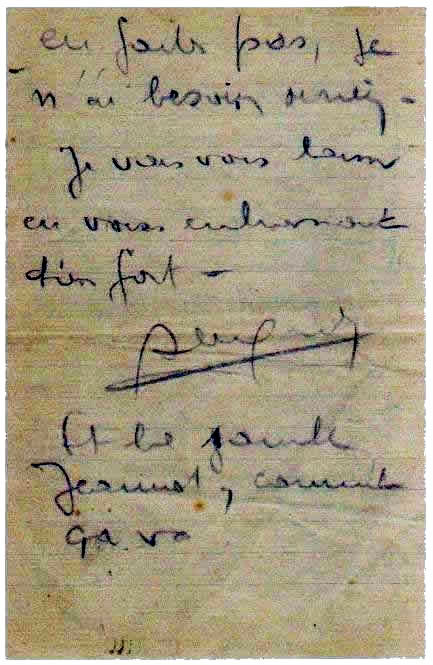 en faites pas, je
n'ai besoin de rien -
Je vais vous laisser
en vous embrassant
bien fort -
Et la famille
Jeannot, comment
ça va